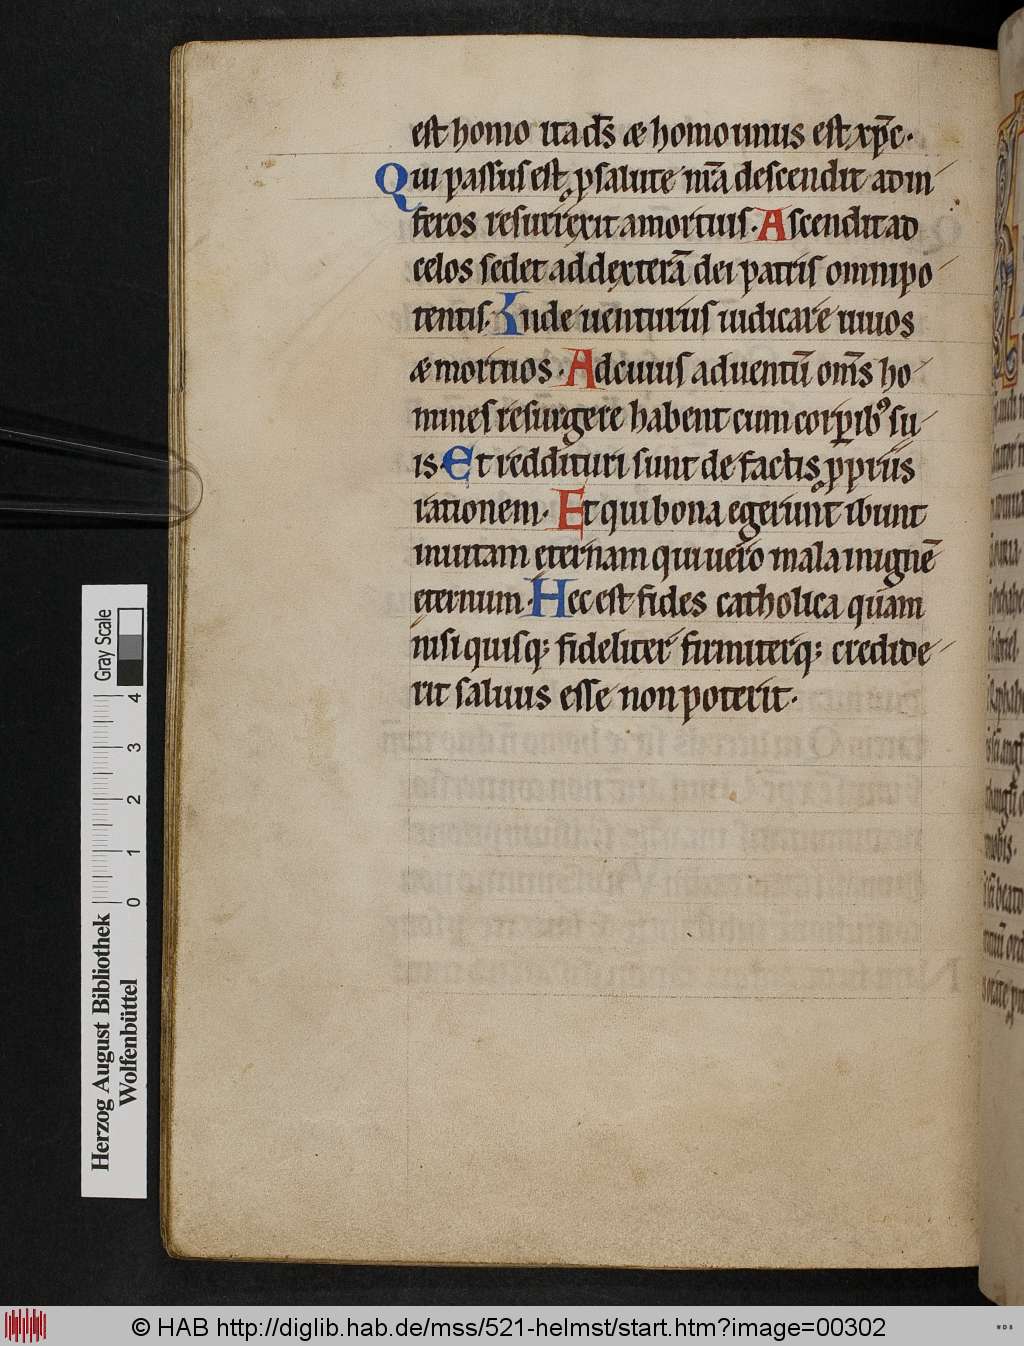 est homo ita ds̄ & homo unus est xp̄c·
Qui passus est ꝓ salute nr̄a descendit ad in
feros resurrexit a mortuis· Ascendit ad
celos sedet ad dexterā dei patris omnipo
tentis· Inde uenturus iudicare uiuos
& mortuos· Ad cuius aduentū om̄s ho
mines resurgere habent cum corꝑibꝰ su
is· Et reddituri sunt de factis ꝓpriis
rationem· Et qui bona egerunt ibunt
in uitam eternam qui uero mala in ignē
eternum· Hec est fides catholica quam
nisi quisq; fideliter firmiterq; credide
rit saluus esse non poterit·
Herzog August Bibliothek
Wolfenbüttel
0 1 2 3 4
Gray Scale
© HAB http://diglib.hab.de/mss/521-helmst/start.htm?image=00302